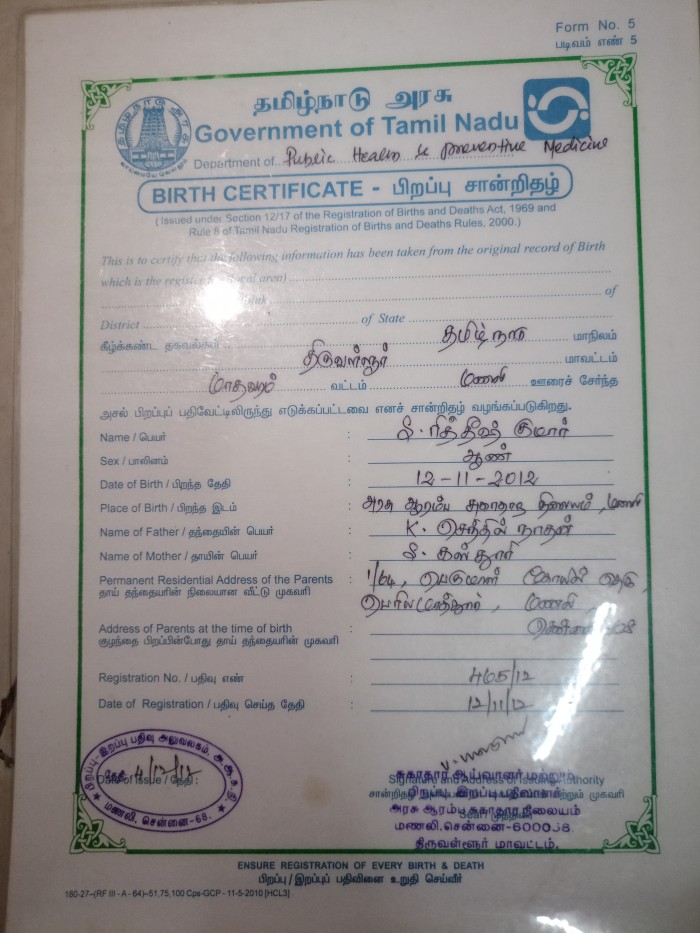 Form No. 5
படிவம் எண் 5
தமிழ்நாடு அரசு
Government of Tamil Nadu
Department of Public Health & preventive Medicine
BIRTH CERTIFICATE - பிறப்பு சான்றிதழ்
( Issued under Section 12/17 of the Registration of Births and Deaths Act, 1969 and
Rule 8 of Tamil Nadu Registration of Births and Deaths Rules, 2000.)
This is to certify that the following information has been taken from the original record of Birth
which is the register local area)
of
District of State
கீழ்க்கண்ட தகவல்கள் தமிழ்நாடு மாநிலம்
திருவள்ளூர் மாவட்டம்
மாதவரம் வட்டம் மணலி ஊரைச் சேர்ந்த
அசல் பிறப்புப் பதிவேட்டிலிருந்து எடுக்கப்பட்டவை எனச் சான்றிதழ் வழங்கப்படுகிறது.
Name / பெயர் : S. ரித்தீஷ் குமார்
Sex / பாலினம் : ஆண்
Date of Birth / பிறந்த தேதி : 12-11-2012
Place of Birth / பிறந்த இடம் : அரசு ஆரம்ப சுகாதார நிலையம், மணலி
Name of Father / தந்தையின் பெயர் : K. செந்தில் நாதன்
Name of Mother / தாயின் பெயர் : S. கஸ்தூரி
Permanent Residential Address of the Parents : 1/64, பெருமாள் கோயில் தெரு,
தாய் தந்தையரின் நிலையான வீட்டு முகவரி
பெரியமாத்தூர், மணலி,
Address of Parents at the time of birth : சென்னை
குழந்தை பிறப்பின்போது தாய் தந்தையரின் முகவரி
Registration No. / பதிவு எண் : 405/12
Date of Registration / பதிவு செய்த தேதி : 12/11/12
பிறப்பு-இறப்பு பதிவு அலுவலகம்,
Date of Issue / தேதி : 4/12/12
மணலி. சென்னை-68.
Signature and Address of Issuing Authority
சுகாதார ஆய்வாளர் மற்றும்
பிறப்பு இறப்பு பதிவாளர்
அரசு ஆரம்ப சுகாதார நிலையம்
மணலி.சென்னை-600068.
திருவள்ளூர் மாவட்டம்.
ENSURE REGISTRATION OF EVERY BIRTH & DEATH
பிறப்பு / இறப்புப் பதிவினை உறுதி செய்வீர்
180-27–(RF III - A - 64)–51,75,100 Cps-GCP - 11-5-2010 [HCL3]